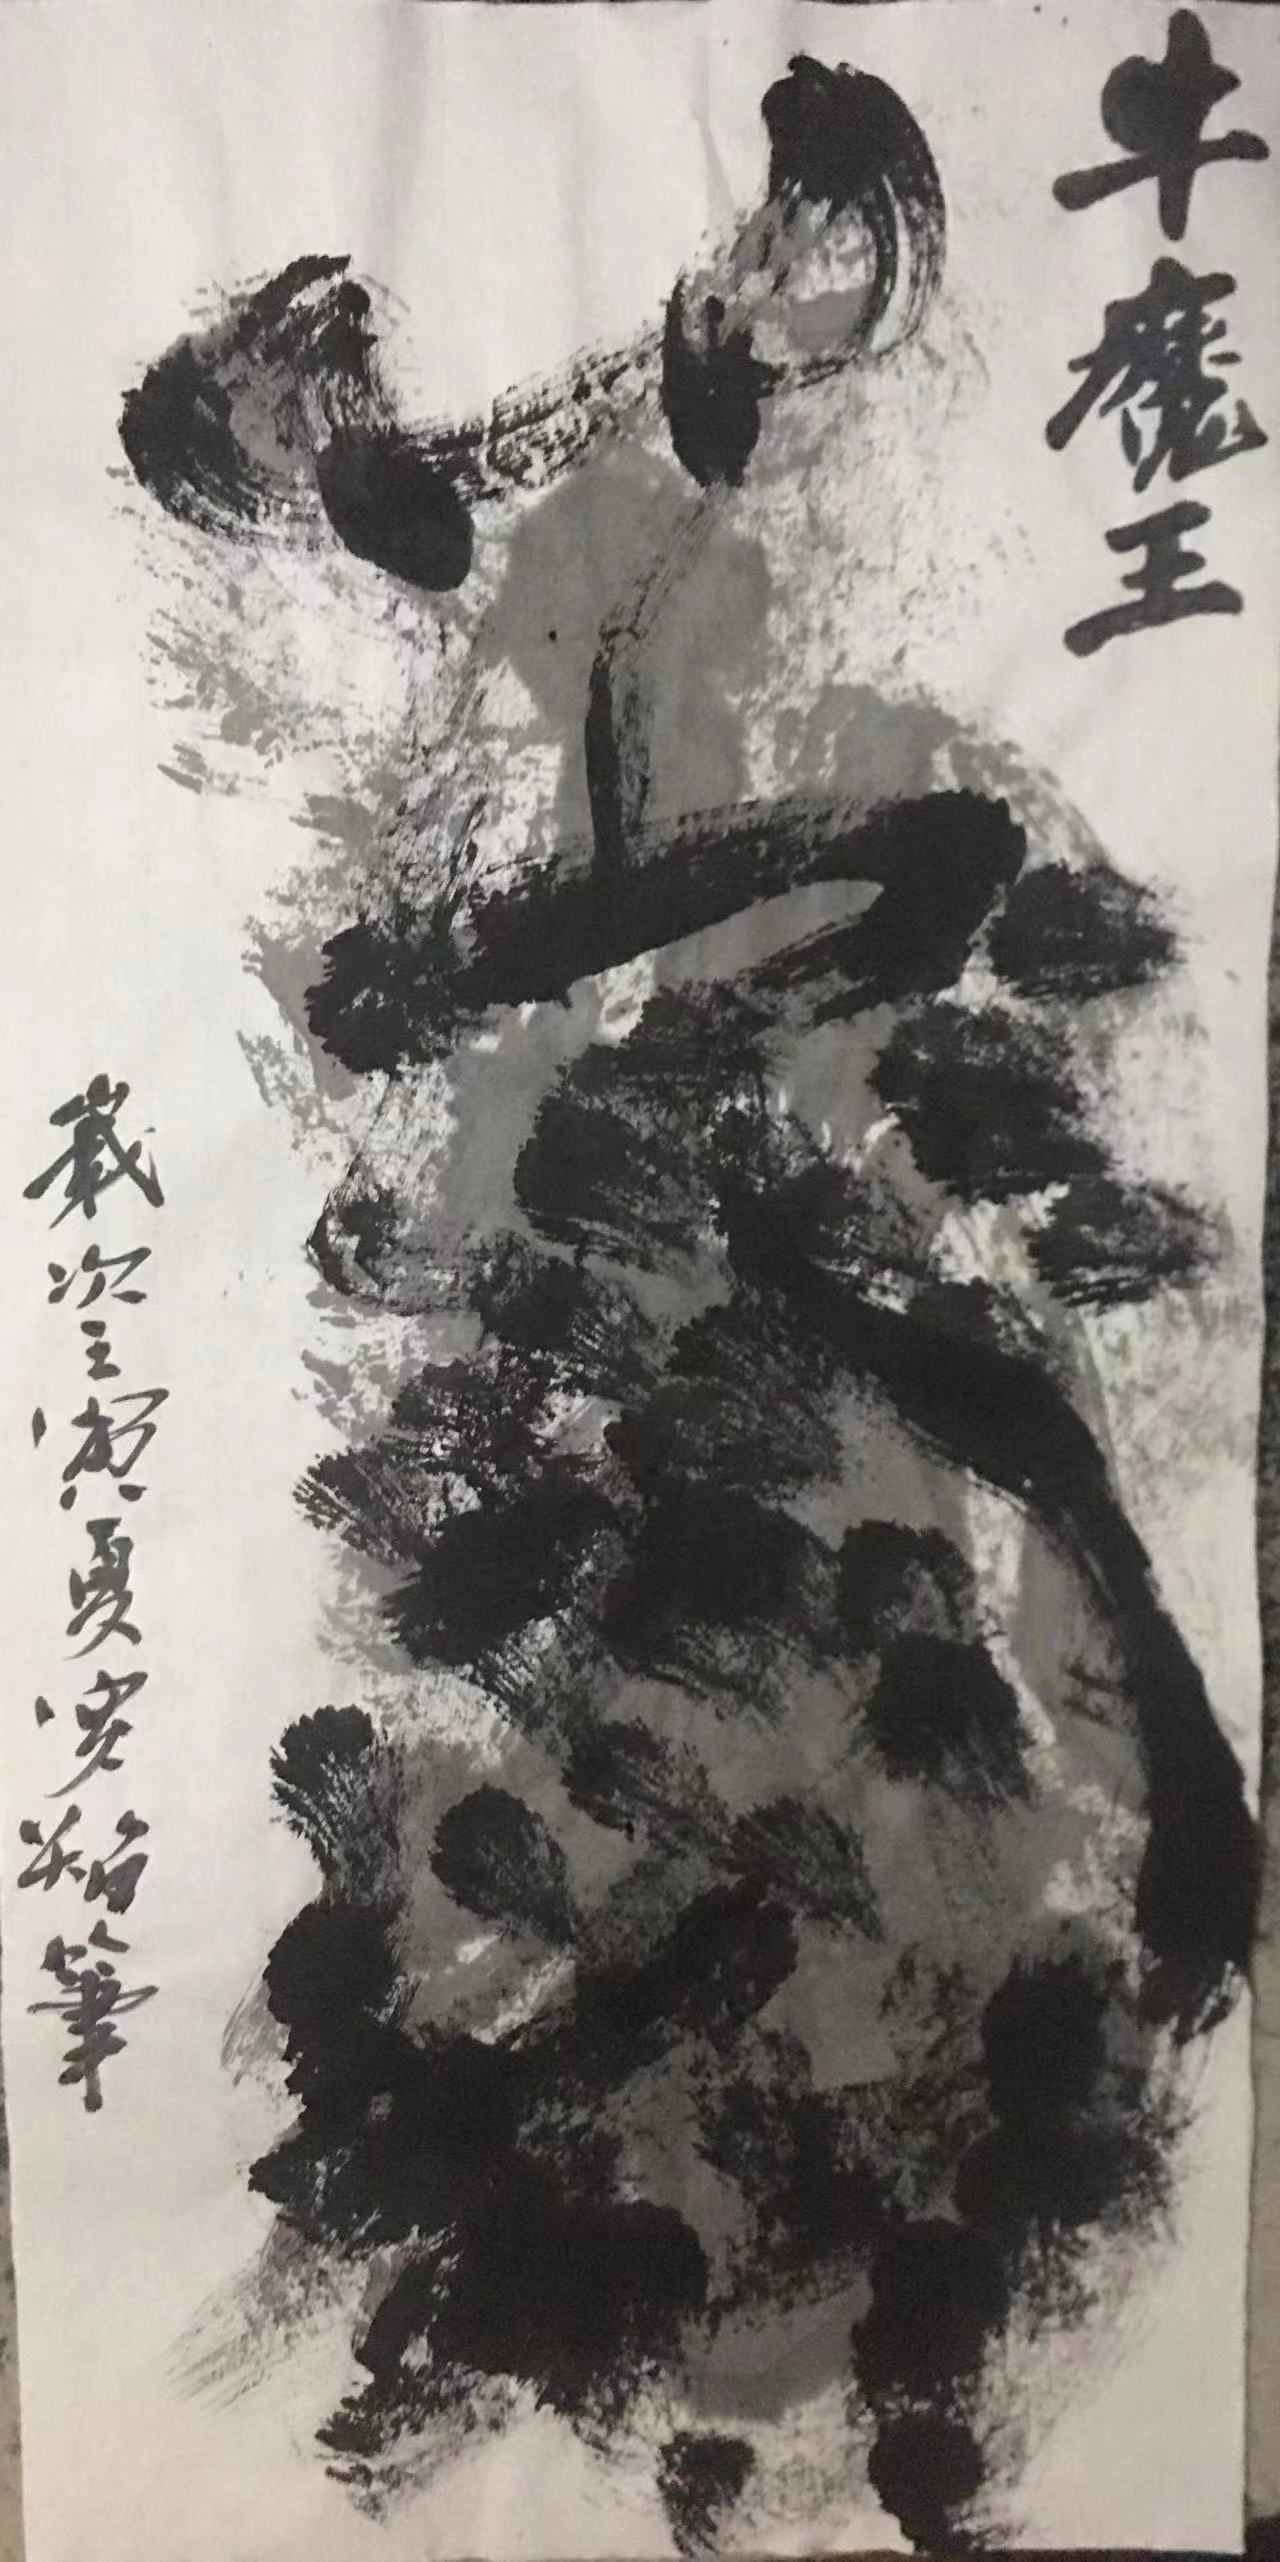 牛魔王
歲次壬寅夏筆